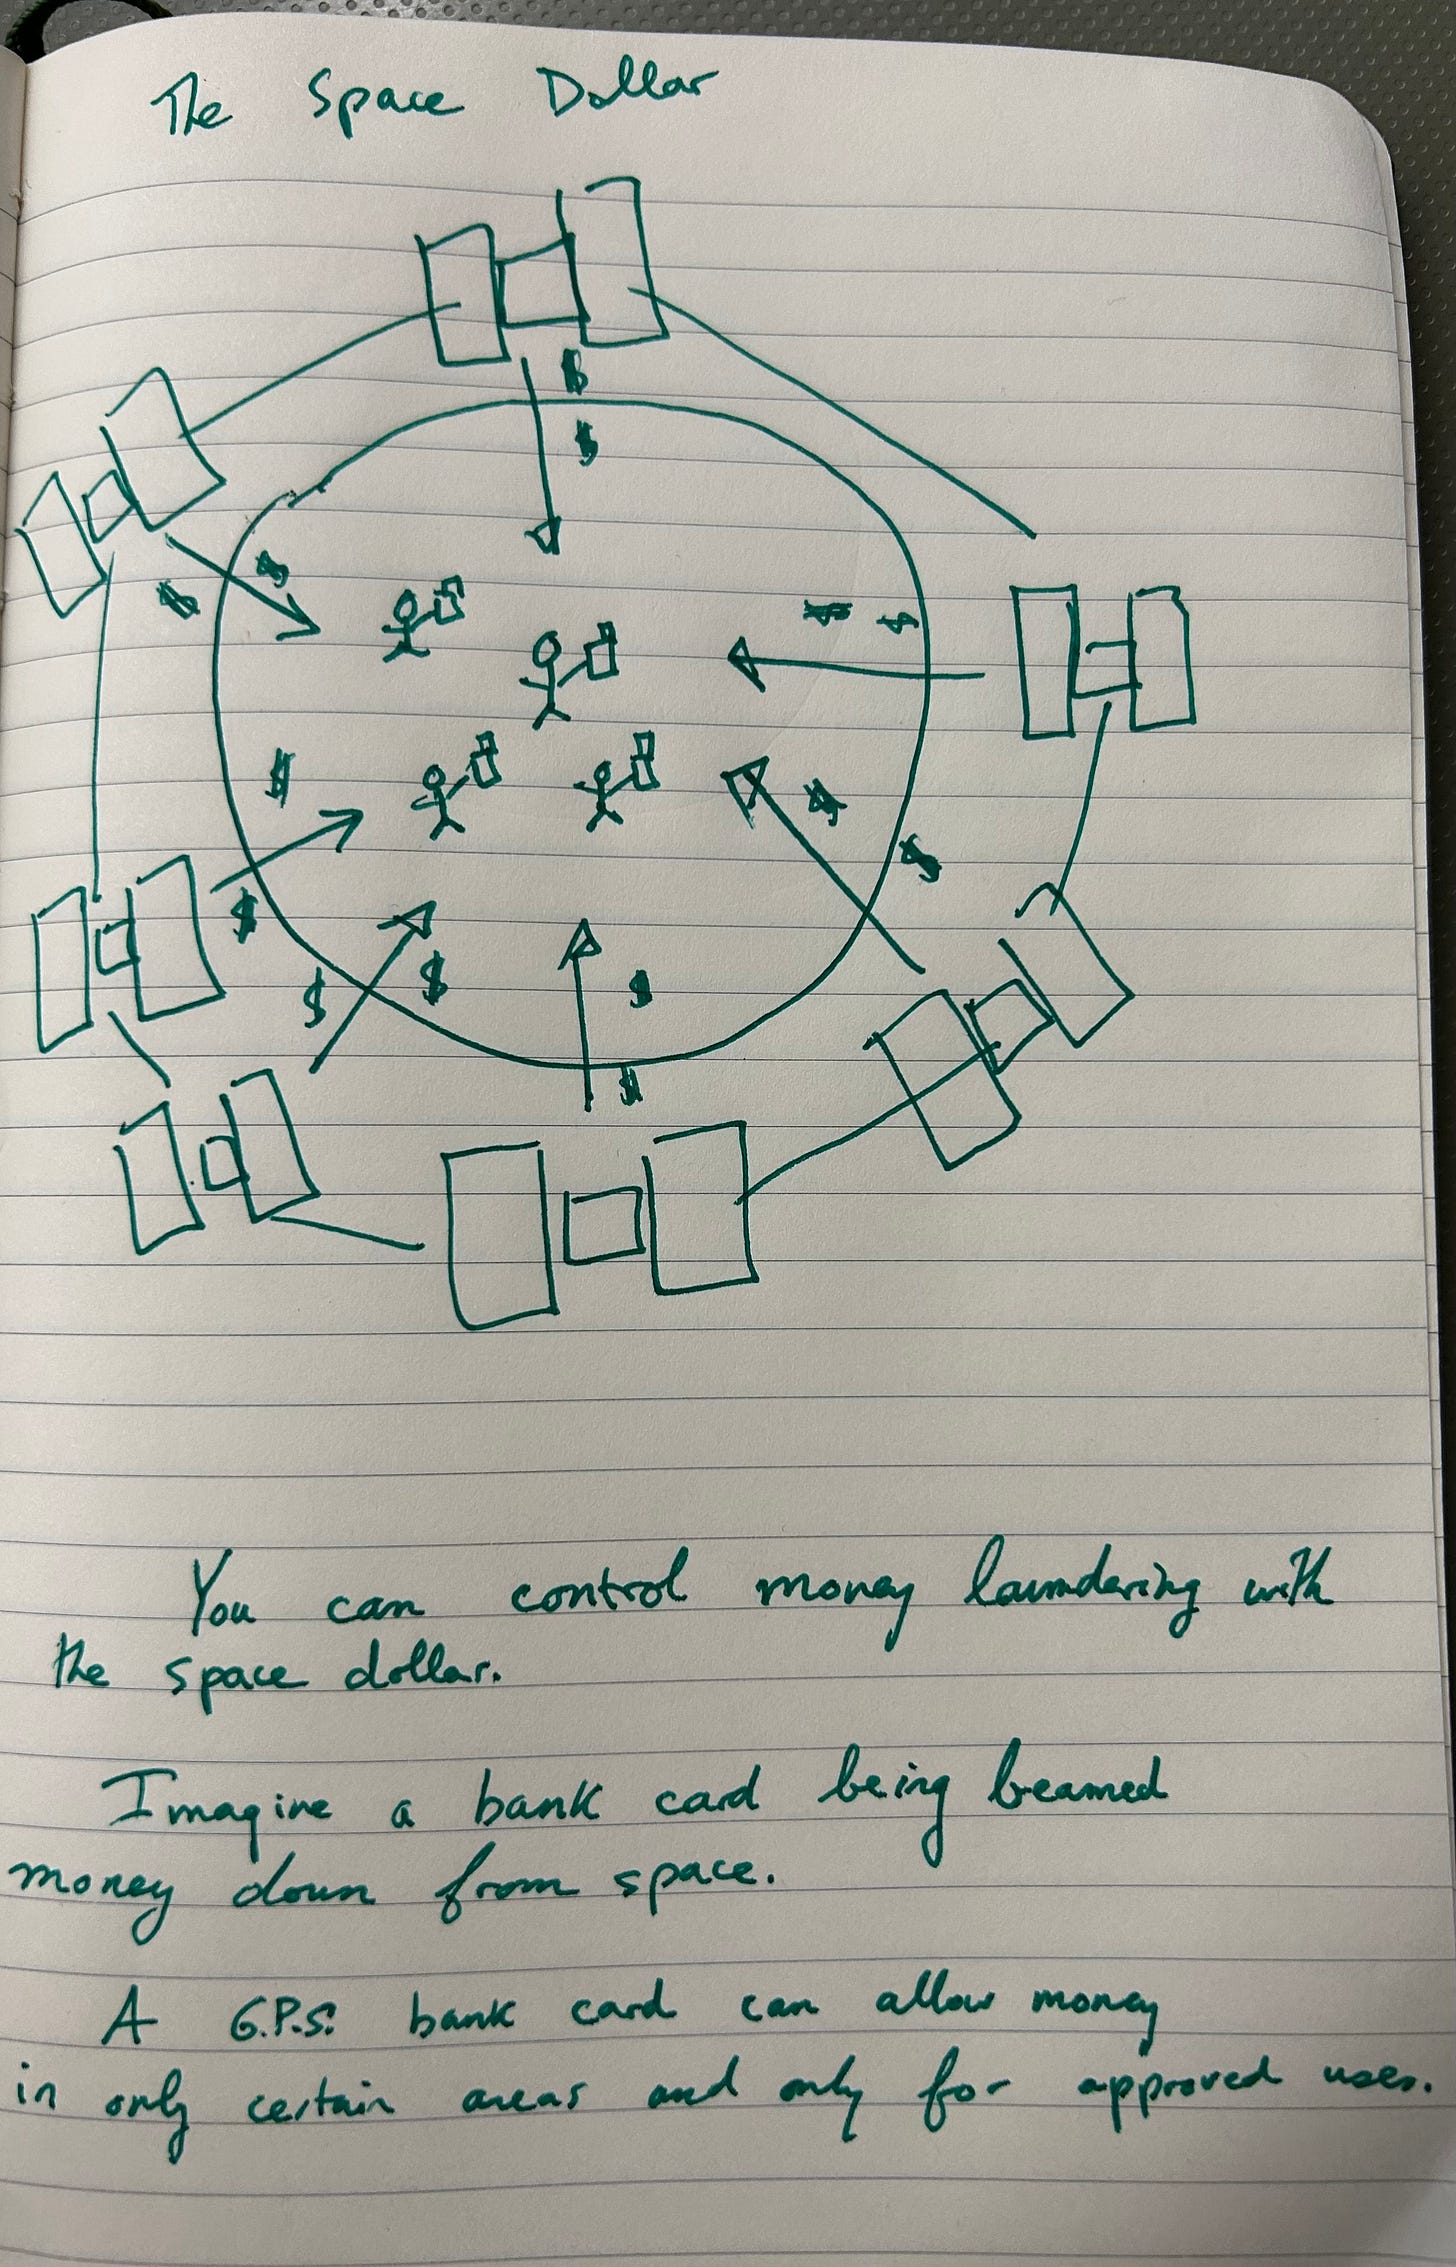 The Space Dollar
$
$
$
$
$ $
$
$
$
$
$
$
$
$
$
You can control money laundering with
the space dollar.
Imagine a bank card being beamed
money down from space.
A G.P.S. bank card can allow money
in only certain areas and only for approved uses.